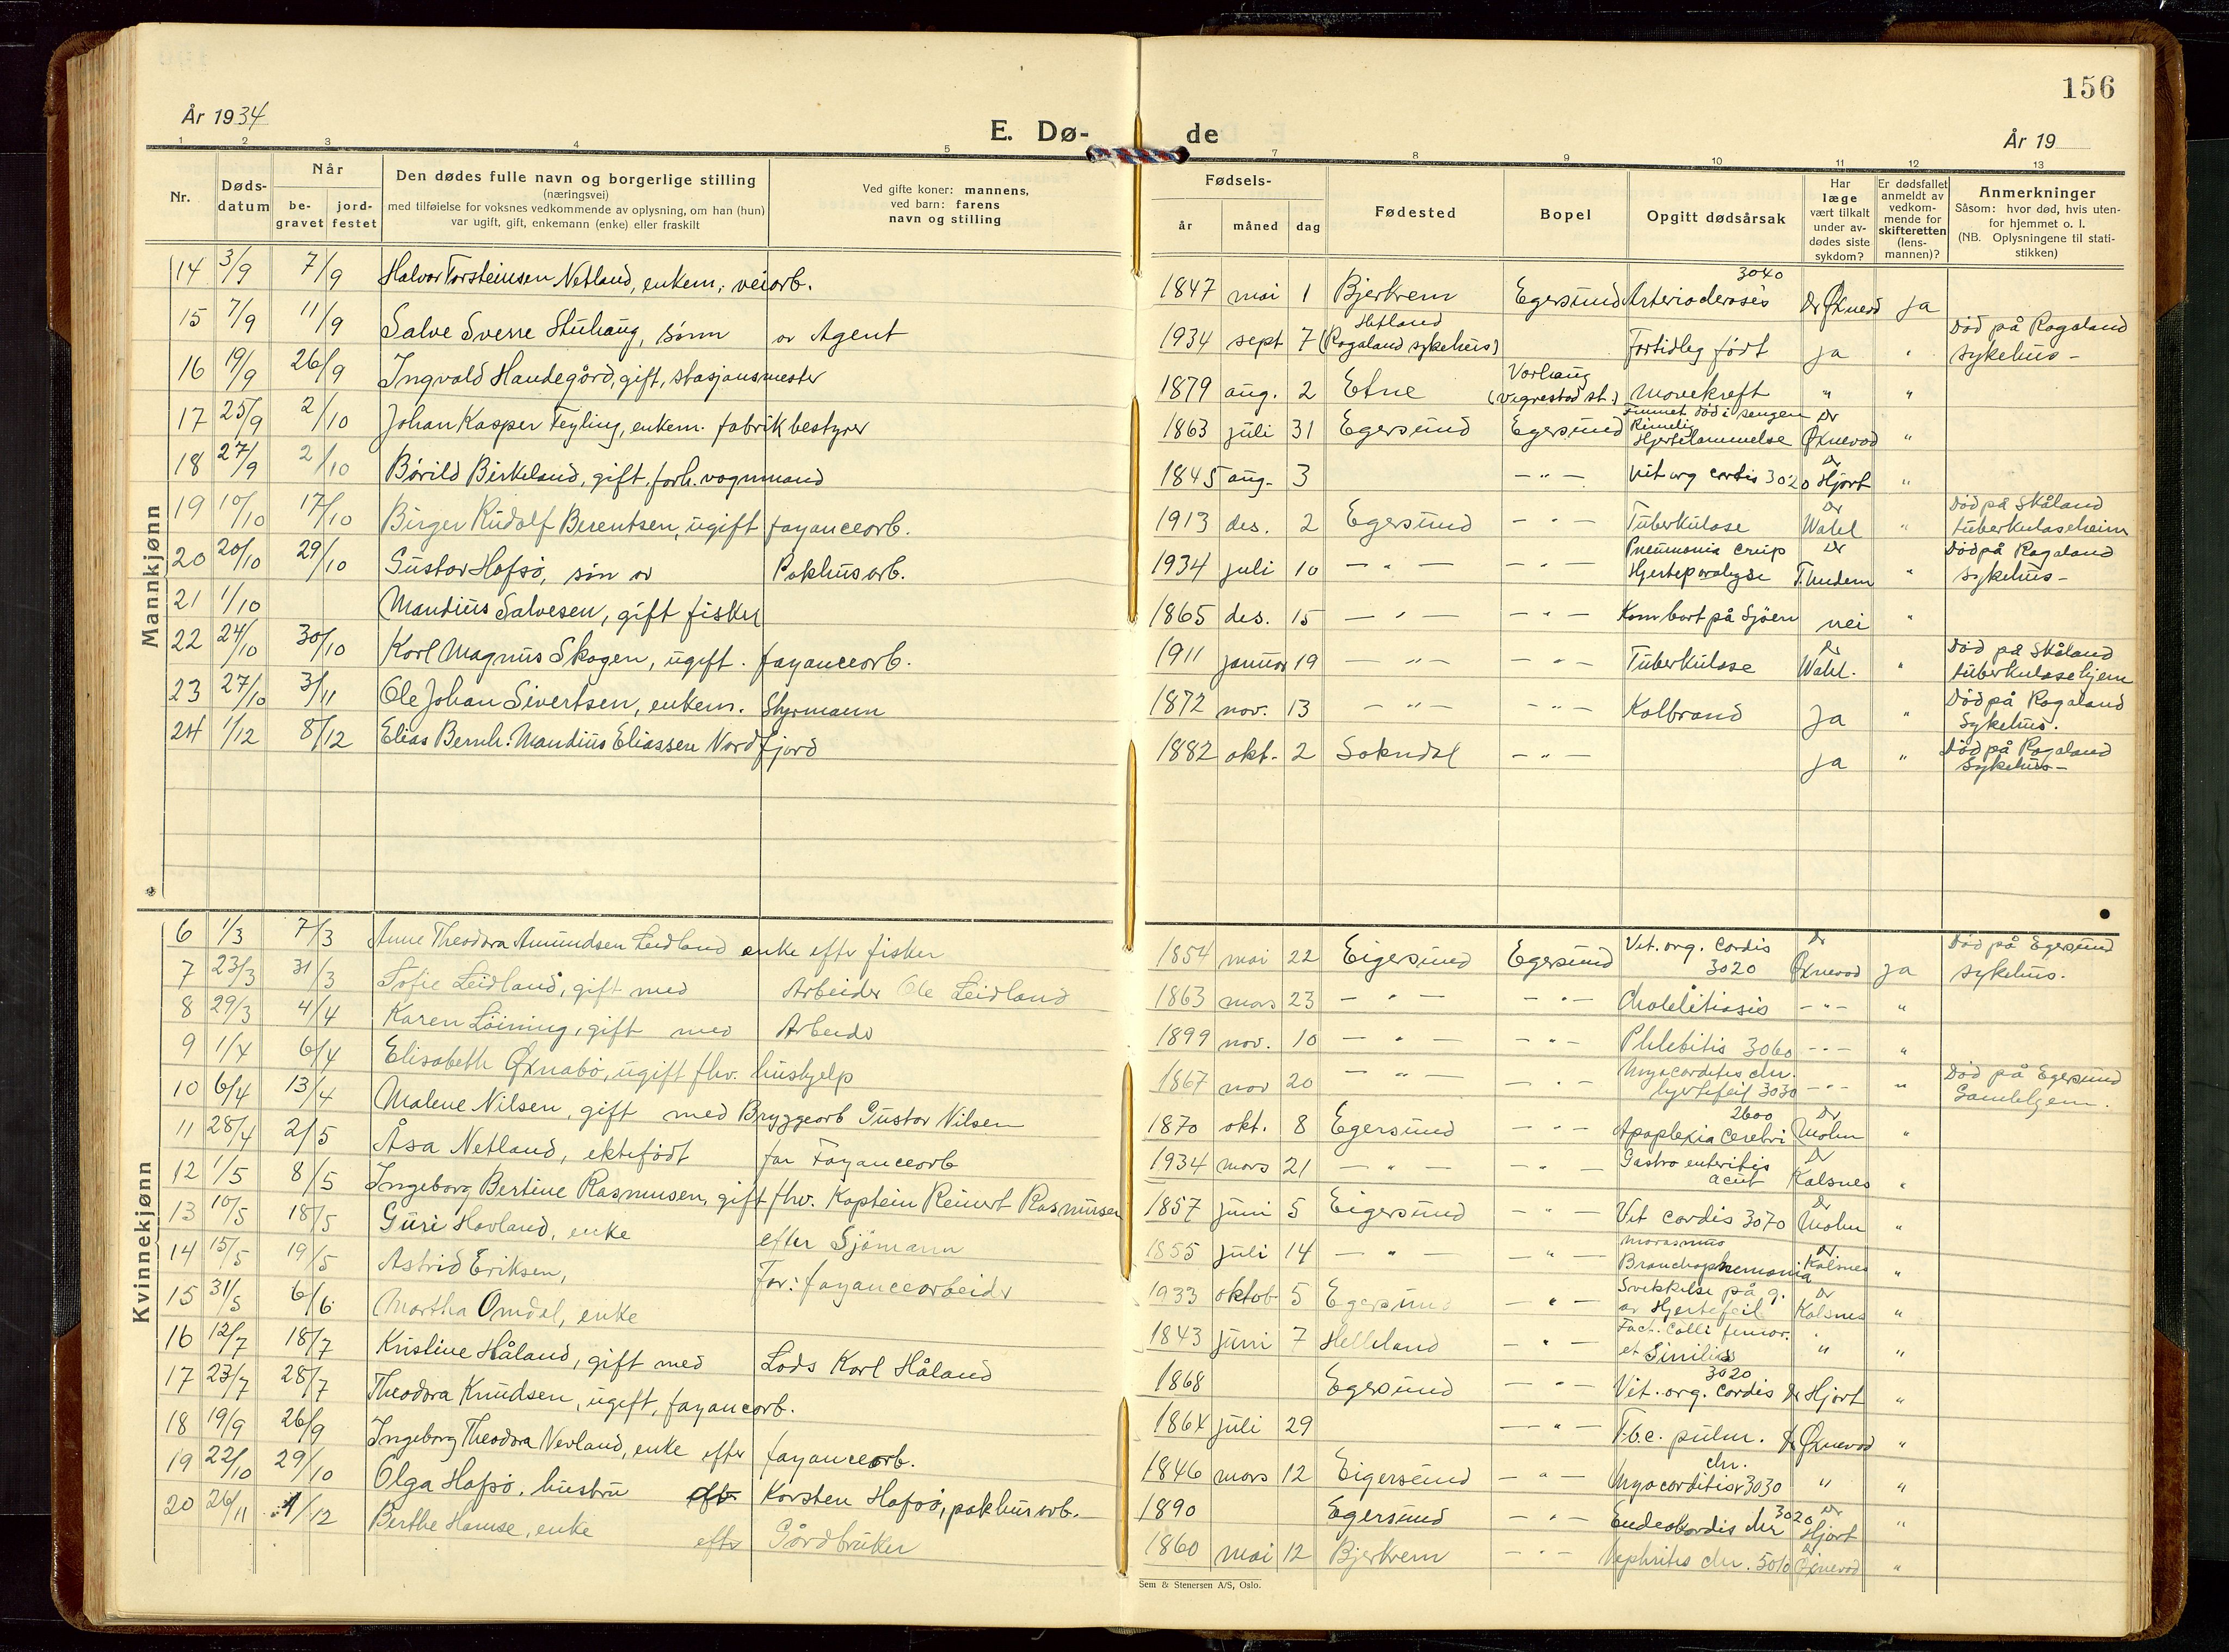 156
År 1934
E. Dø-
de
År 19
1 2 3 4 5 7 8 9 10 11 12 13
Nr.
Døds-
datum
Når
be-
gravet
jord-
festet
Den dødes fulle navn og borgerlige stilling
(næringsvei)
med tilføielse for voksnes vedkommende av oplysning, om han (hun)
var ugift, gift, enkemann (enke) eller fraskilt
Ved gifte koner: mannens,
ved barn: farens
navn og stilling
Fødsels-
år måned dag
Fødested
Bopel
Opgitt dødsårsak
Har
læge
vært tilkalt
under av-
dødes siste
sykdom?
Er dødsfallet
anmeldt av
vedkom-
mende for
skifteretten
(lens-
mannen)?
Anmerkninger
Såsom: hvor død, hvis uten-
for hjemmet o. l.
(NB. Oplysningene til stati-
stikken)
Mannkjønn
14 3/9 7/9 Halvor Torsteinsen Netland, enkem, veiarb.
15 7/9 11/9 Salve Sverre Stuhaug, sønn av Agent
16 19/9 26/9 Ingvald Haudegård, gift, stasjonsmester
17 25/9 2/10 Johan Kasper Feyling, enkem. fabrikbestyrer
18 27/9 2/10 Bårild Birkeland, gift, forh. vognmand
19 10/10 17/10 Birger Rudolf Berentsen, ugift fayancearb.
20 20/10 29/10 Gustav Hofsø, søn av Pakhusarb.
21 1/10 Mandius Salvesen, gift fisker
22 24/10 30/10 Karl Magnus Skogen, ugift. fayancearb.
23 27/10 3/11 Ole Johan Sivertsen, enkem. Styrmann
24 1/12 8/12 Elias Bernh. Mandius Eliassen Nordfjord
1847 mai 1 Bjerkrem Egersund Arteriosclerosis 3040 Dr Øxnevad ja
1934 sept 7 Hetland (Rogaland sykehus) Fortidleg født ja " Død på Rogaland sykehus -
1879 aug. 2 Etne Varhaug (Vigrestad st.) Mavekreft " "
1863 juli 31 Egersund Egersund Funnet død i sengen Rimelig Hjertelammelse Dr Øxnevad "
1845 aug. 3 - " - Vit org cordis 3020 Dr Hjort "
1913 des. 2 Egersund - " - Tuberkulose Dr Wahl " Død på Skåland tuberkuloseheim
1934 juli 10 - " - - " - Pneumonia Crup Hjerteparalyse Dr " Død på Rogaland sykehus -
1865 des. 15 - " - - " - Kom bort på Sjøen nei "
1911 januar 19 - " - - " - Tuberkulose Dr Wahl. " Død på Skåland tuberkulosehjem
1872 nov. 13 - " - - " - Kolbrand ja " Død på Rogaland Sykehus.
1882 okt. 2 Sokndal - " - ja " Død på Rogaland Sykehus -
Kvinnekjønn
6 1/3 7/3 Anne Theodora Amundsen Leidland enke eftr fisker
7 23/3 31/3 Sofie Leidland, gift med Arbeider Ole Leidland
8 29/3 4/4 Karen Løining, gift med Arbeider
9 1/4 6/4 Elisabeth Øxnabø, ugift fhv. hushjelp
10 6/4 13/4 Malene Nilsen, gift med Bryggearb Gustav Nilsen
11 28/4 2/5 Åsa Netland, ektefødt far Fayancearb
12 1/5 8/5 Ingeborg Bertine Rasmusen, gift fhv. Kaptein Reinert Rasmusen
13 10/5 18/5 Guri Hovland, enke efter Sjømann
14 15/5 19/5 Astrid Eriksen, Far: fayancearbeider
15 31/5 6/6 Martha Omdal, enke
16 12/7 18/7 Kristine Håland, gift med Lods Karl Håland
17 23/7 28/7 Theodora Knudsen, ugift, fayancearb.
18 19/9 26/9 Ingeborg Theodora Nevland, enke efter fayancearb.
19 22/10 29/10 Olga Hofsø, hustru Karsten Hofsø, pakhusarb.
20 26/11 1/12 Berthe Hamse, enke eftr Gårdbruker
1854 mai 22 Eigersund Egersund Vit. org. Cordis 3020 Dr Øxnevad ja Død på Egersund sykehus.
1863 mars 23 - " - - " - Cholelitiasis - " - "
1899 nov. 10 - " - - " - Phlebitis 3060 - " - "
1867 nov 20 - " - - " - Myocarditis chr. hjertefeil 3030 - " - " Død på Egersund Gamlehjem.
1870 okt. 8 Egersund - " - Apoplexia Cerebri 2600 Dr Molin "
1934 mars 21 - " - - " - Gastro enteritis acut Dr Kalsnes "
1857 juni 5 Eigersund - " - Vit cordis 3070 Dr Molin "
1855 juli 14 - " - - " - Marasmus Bronchopneumonia Dr Kalsnes "
1933 oktob 5 Egersund - " - Svekkelse på g. av Hjertefeil Dr Kalsnes "
1843 juni 7 Helleland - " - Fract. Colli femor. et Sinilis " "
1868 Egersund - " - Vit. org. Cordis 3020 Dr Hjort "
1864 juli 29 - " - T.b.c. pulm. Dr Øxnevad "
1846 mars 12 Eigersund - " - Myocarditis chr. 3030 " "
1890 Egersund - " - Endocardis chr 3020 Dr Hjort "
1860 mai 12 Bjerkrem - " - Nephritis chr. 5010 Dr Øxnevad "
Sem & Stenersen A/S, Oslo.